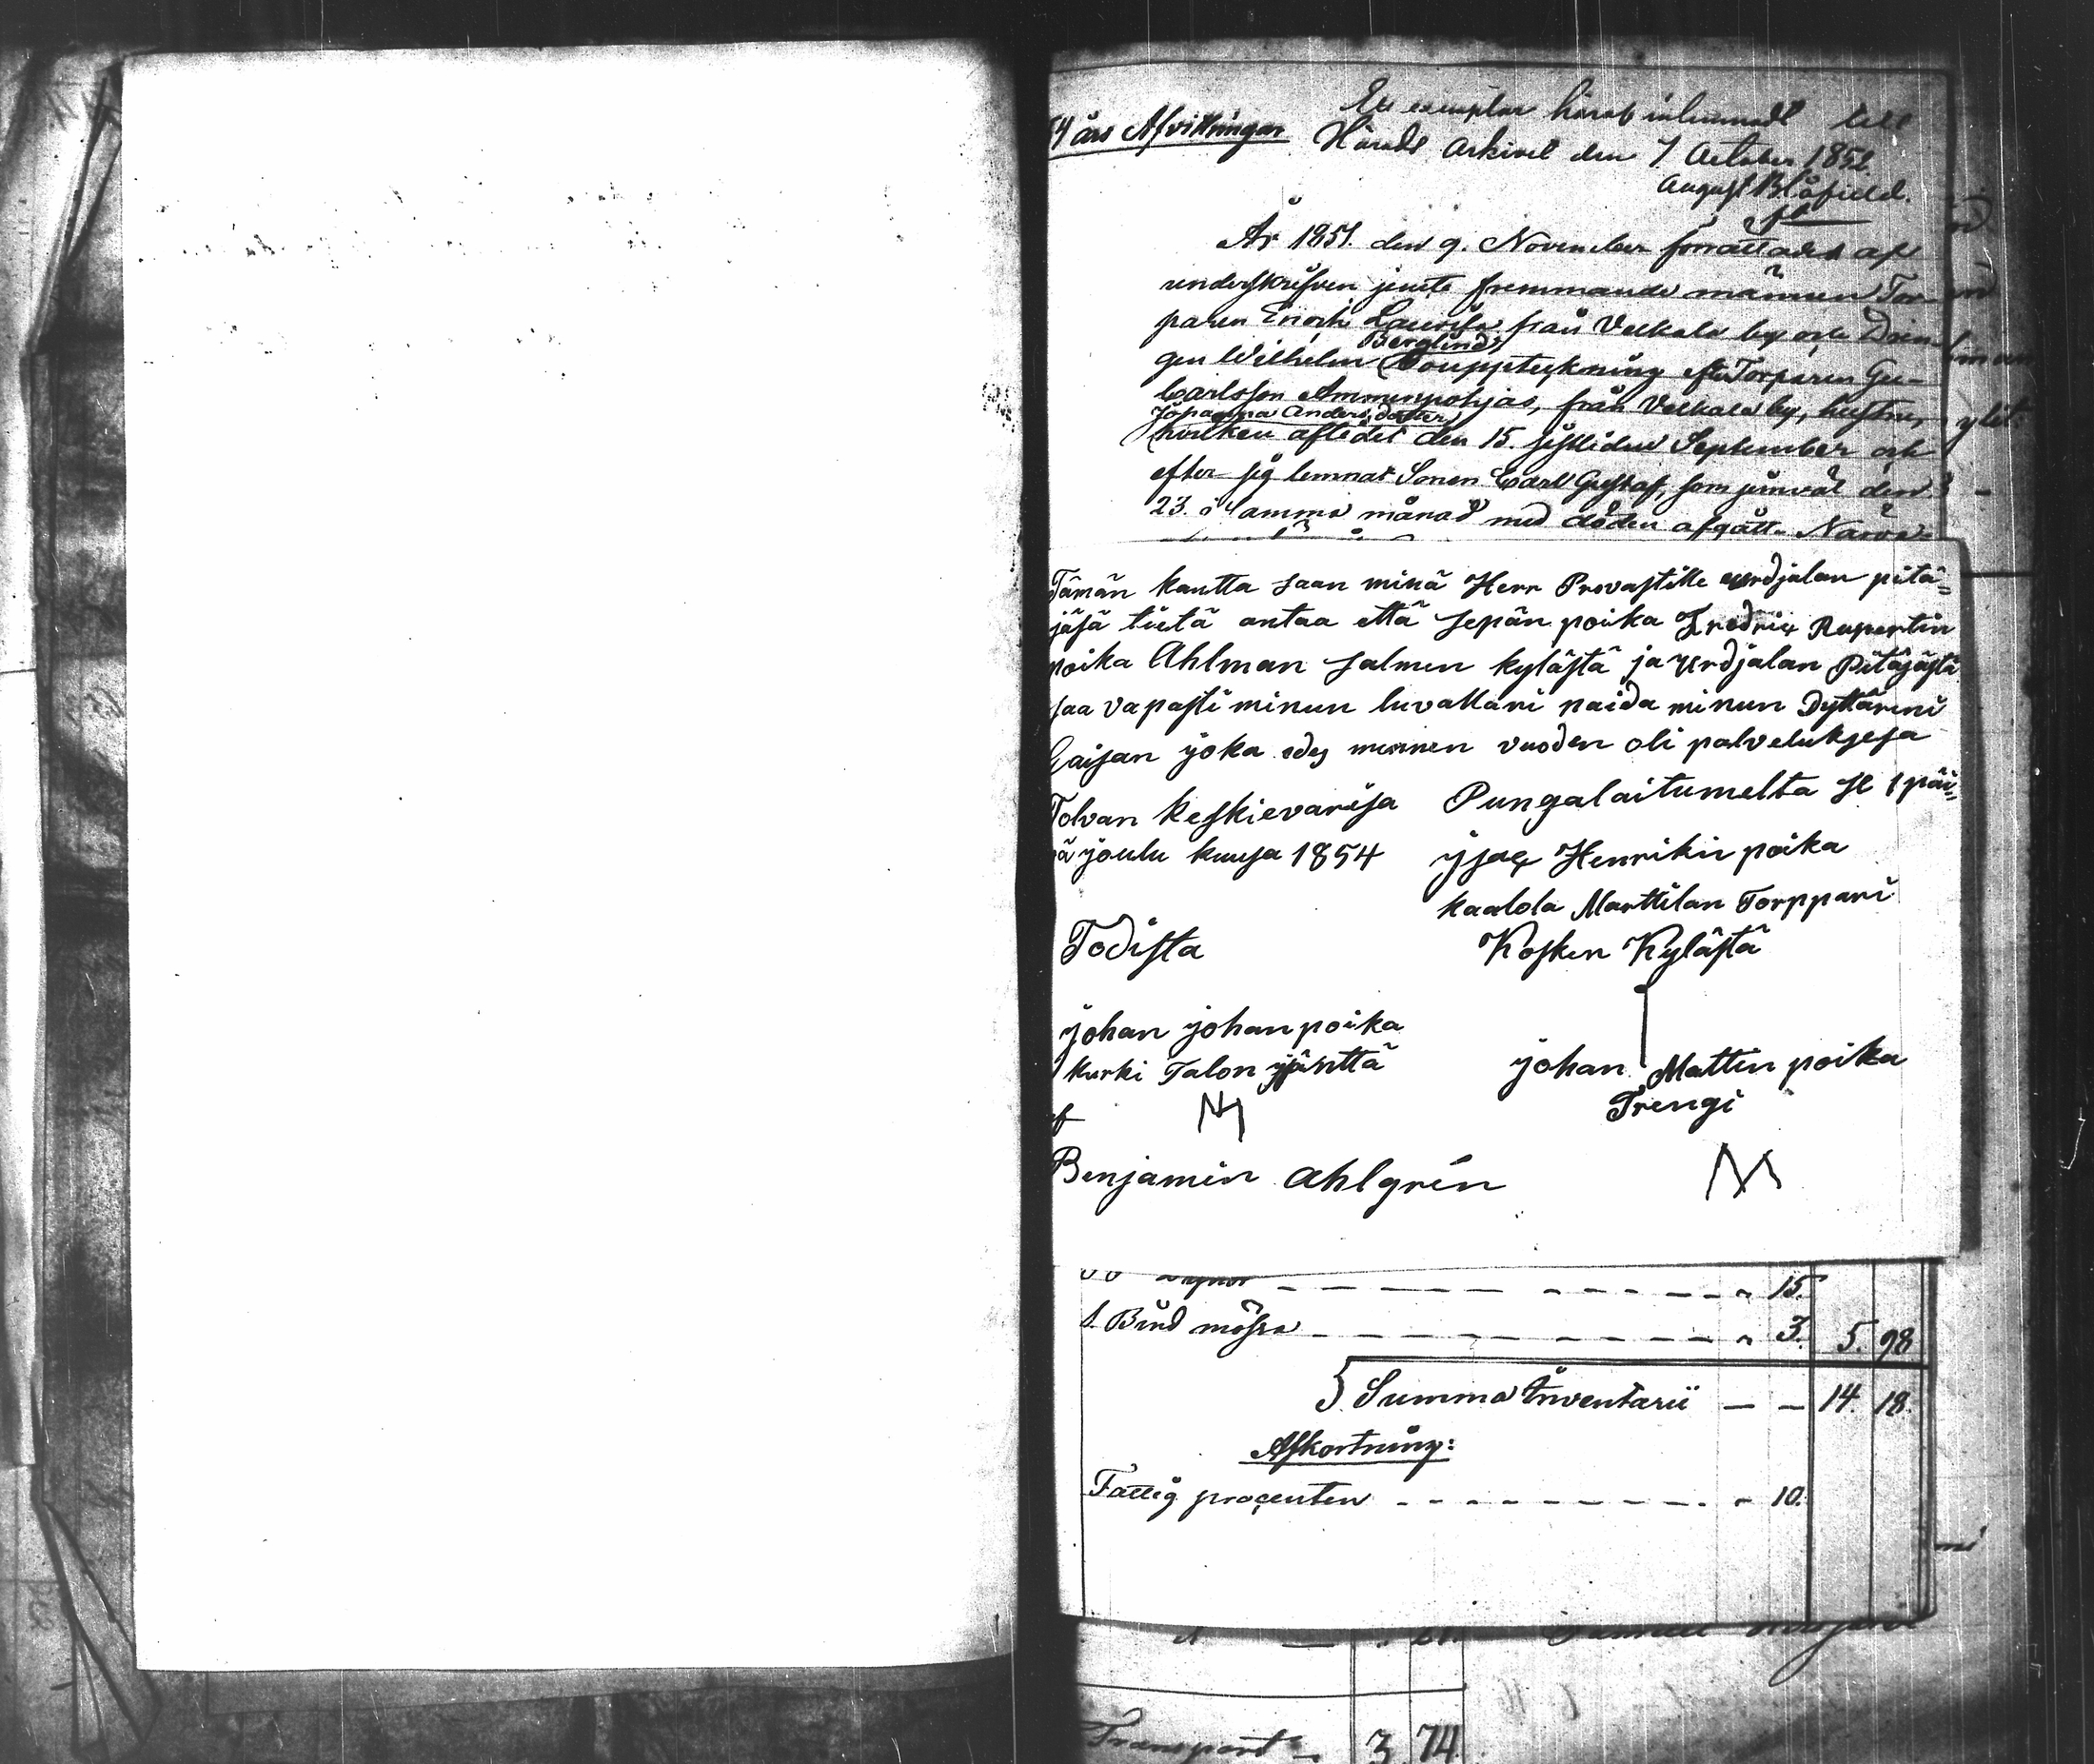 54 års Afvittningar
Ett exemplar häraf inlemnadt till
Härads Arkivet den 7 October 1852.
August Blåfield.
År 1851. den 9. November förrättades af
underskrifven jemte fremmande männen Tor-
paren Enoch Laurila från Velkala by och Drän-
gen Wilhelm Berglund, Bouppteckning efter Torparen Gu-
Carlsson Ammenpohjas, från Velkala by, hustru,
Johanna Andersdotter
hvilken aflidit den 15. sistliden September och
efter sig lemnat Sonen Carl Gustaf, som jemväl den
23. i samma månad med döden afgått. Närva-
Tämän kautta saan minä Herr Provastille Urdjalan pitä-
jäsä tietä antaa että sepän poika Fredric Rupertin
poika Ahlman salmen kylästä ja Urdjalan Pitäjästä
saa vapasti minun luvallani naida minun Dyttäreni
Caisan joka edes mennen vuoden oli palveluksesa
Tolvan keskievarisa Pungalaitumelta se 1 päi-
vä joulu kuusa 1854 Ysac Henrikin poika
kaalola Marttilan Torppari
Todista Kosken Kylästä
Johan Johanpoika
Kurki Talon isäntä Johan Mattin poika
Trengi
Benjamin Ahlgrén
15.
1. Bind mössa 3. 5. 98
Summa Inventarii 14. 18.
Afkortning:
Fattig procenten 10.
Transport 3 74